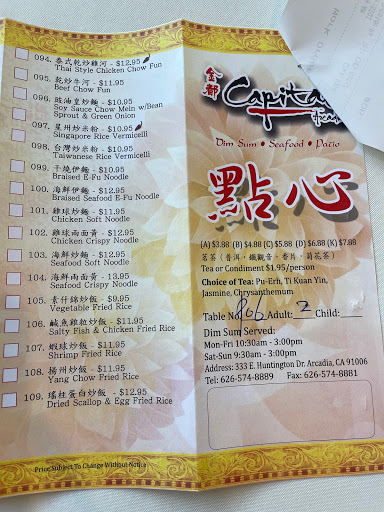 094. 泰式乾炒雞河 - $12.95
Thai Style Chicken Chow Fun
095. 乾炒牛河 - $11.95
Beef Chow Fun
096. 豉油皇炒麵 - $10.95
Soy Sauce Chow Mein w/Bean
Sprout & Green Onion
097. 星州炒米粉 - $10.95
Singapore Rice Vermicelli
098. 台灣炒米粉 - $10.95
Taiwanese Rice Vermicelli
099. 干燒伊麵 - $10.95
Braised E-Fu Noodle
100. 海鮮伊麵 - $12.95
Braised Seafood E-Fu Noodle
101. 雞球炒麵 - $11.95
Chicken Soft Noodle
102. 雞球兩面黃 - $12.95
Chicken Crispy Noodle
103. 海鮮炒麵 - $12.95
Seafood Soft Noodle
104. 海鮮兩面黃 - 13.95
Seafood Crispy Noodle
105. 素什錦炒飯 - $9.95
Vegetable Fried Rice
106. 鹹魚雞粒炒飯 - $11.95
Salty Fish & Chicken Fried Rice
107. 蝦球炒飯 - $11.95
Shrimp Fried Rice
108. 揚州炒飯 - $11.95
Yang Chow Fried Rice
109. 瑤柱蛋白炒飯 - $12.95
Dried Scallop & Egg Fried Rice
Price Subject To Change Without Notice
金都
Capita
Dim Sum • Seafood • Patio
點心
(A) $3.88 (B) $4.88 (C) $5.88 (D) $6.88 (K) $7.88
茗茶 (普洱、鐵觀音、香片、菊花茶)
Tea or Condiment $1.95/person
Choice of Tea: Pu-Erh, Ti Kuan Yin,
Jasmine, Chrysanthemum
Table No: 806 Adult: 2 Child:
Dim Sum Served:
Mon-Fri 10:30am - 3:00pm
Sat-Sun 9:30am - 3:00pm
Address: 333 E. Huntington Dr. Arcadia, CA 91006
Tel: 626-574-8889 Fax: 626-574-8881